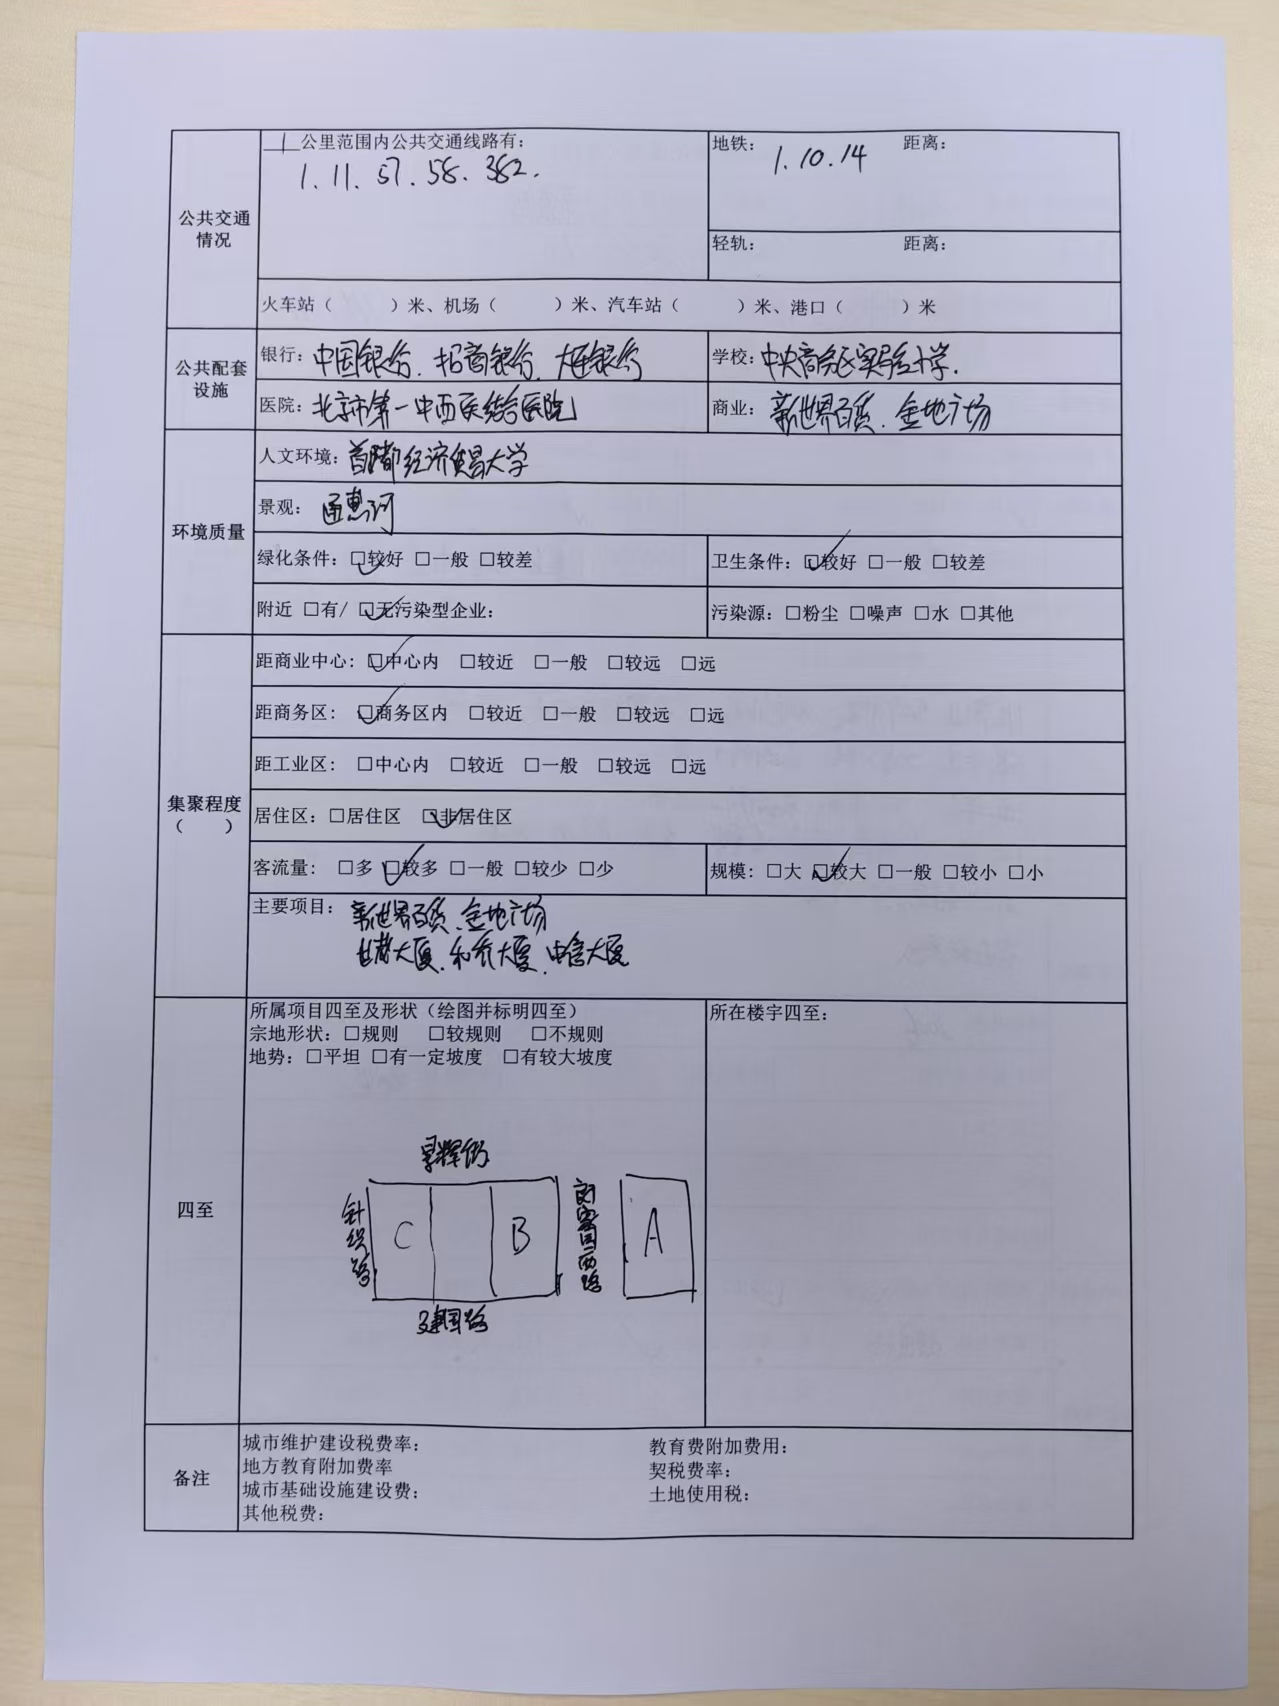 1 公里范围内公共交通线路有：
1.11.57.58.382.
地铁： 1.10.14 距离：
公共交通情况
轻轨： 距离：
火车站（ ）米、机场（ ）米、汽车站（ ）米、港口（ ）米
公共配套设施
银行：中国银行、招商银行、大连银行
学校：中央商务区实验小学.
医院：北京市第一中西医结合医院
商业：新世界百货、金地广场
环境质量
人文环境：首都经济贸易大学
景观：通惠河
绿化条件：☑较好 □一般 □较差
卫生条件：☑较好 □一般 □较差
附近 □有/ ☑无污染型企业：
污染源：□粉尘 □噪声 □水 □其他
集聚程度
（ ）
距商业中心：☑中心内 □较近 □一般 □较远 □远
距商务区：☑商务区内 □较近 □一般 □较远 □远
距工业区：□中心内 □较近 □一般 □较远 □远
居住区：□居住区 ☑非居住区
客流量：□多 ☑较多 □一般 □较少 □少
规模：□大 ☑较大 □一般 □较小 □小
主要项目：新世界百货、金地广场
大厦、和乔大厦、大厦
四至
所属项目四至及形状（绘图并标明四至）
宗地形状：□规则 □较规则 □不规则
地势：□平坦 □有一定坡度 □有较大坡度
所在楼宇四至：
景辉街
针织路
C
B
西路
A
建国路
备注
城市维护建设税费率：
教育费附加费用：
地方教育附加费率
契税费率：
城市基础设施建设费：
土地使用税：
其他税费：